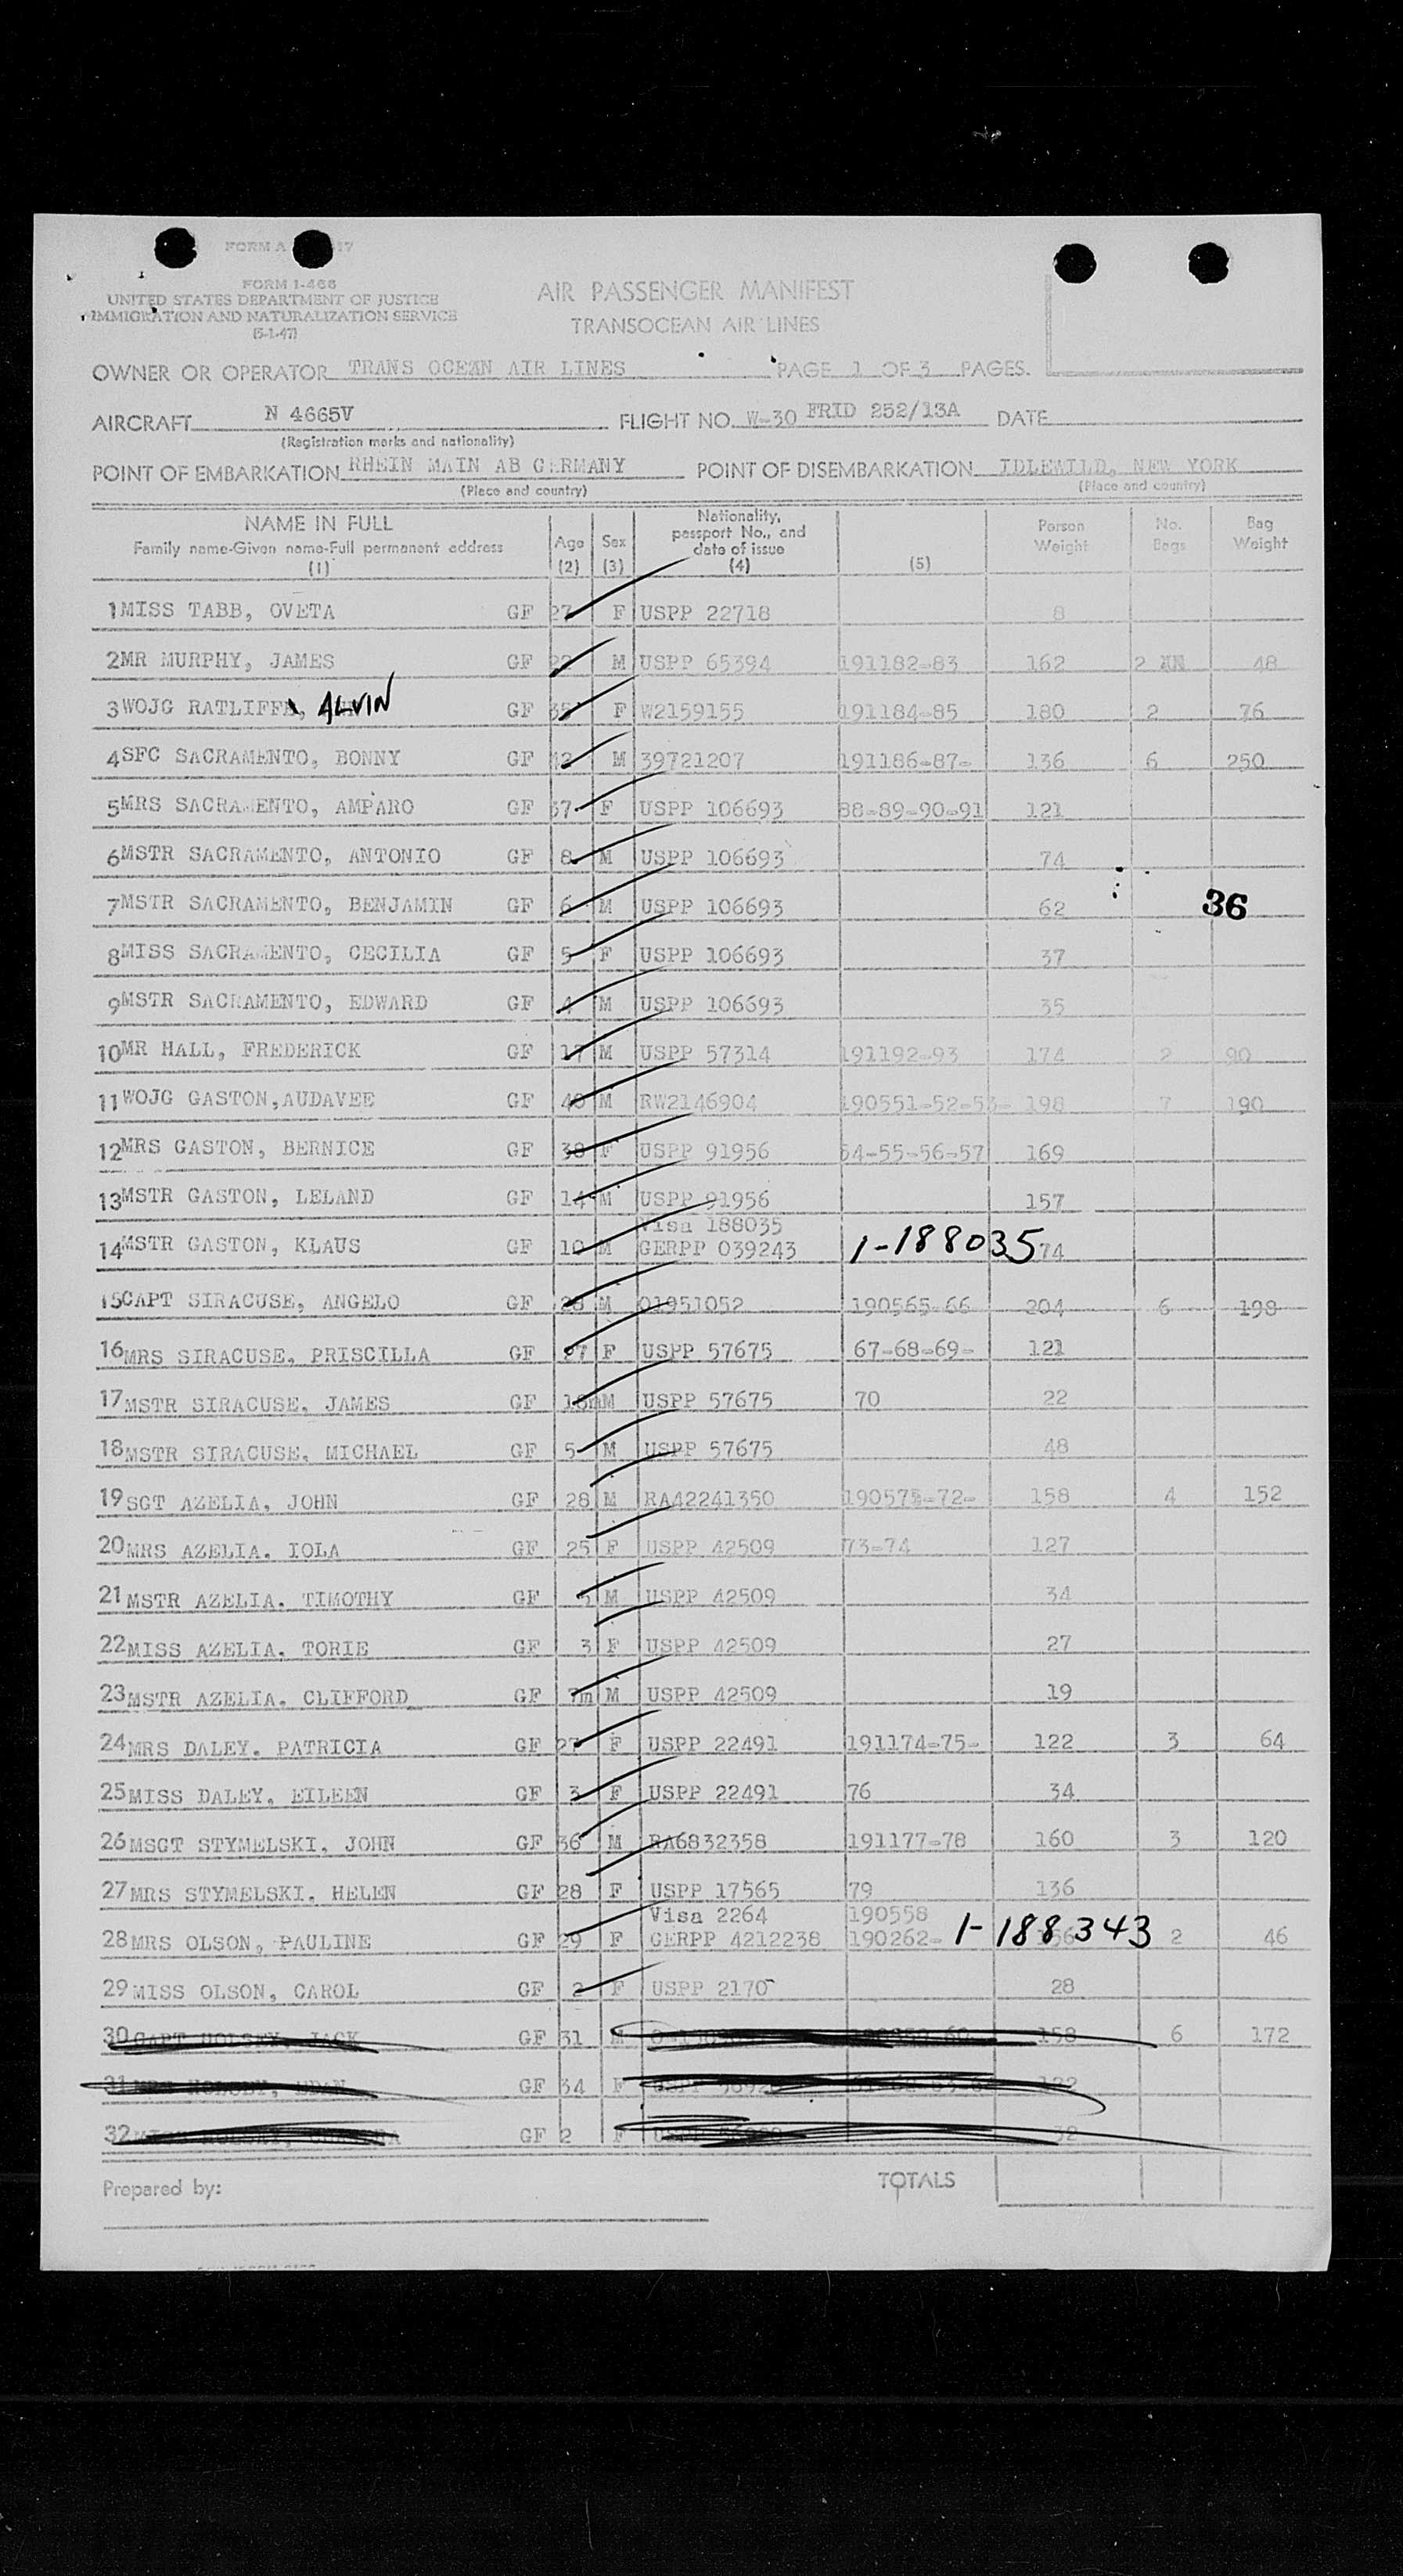 FORM A
FORM I-466
UNITED STATES DEPARTMENT OF JUSTICE
IMMIGRATION AND NATURALIZATION SERVICE
(5-1-47)
AIR PASSENGER MANIFEST
TRANSOCEAN AIR LINES
OWNER OR OPERATOR TRANS OCEAN AIR LINES PAGE 1 OF 3 PAGES.
AIRCRAFT N 4665V FLIGHT NO. W-30 FRID 252/13A DATE
(Registration marks and nationality)
POINT OF EMBARKATION RHEIN MAIN AB GERMANY POINT OF DISEMBARKATION IDLEWILD, NEW YORK
(Place and country) (Place and country)
NAME IN FULL
Family name-Given name-Full permanent address
(1)
Age
(2)
Sex
(3)
Nationality,
passport No., and
date of issue
(4)
(5)
Person
Weight
No.
Bags
Bag
Weight
1 MISS TABB, OVETA GF 27 F USPP 22718 8
2 MR MURPHY, JAMES GF 22 M USPP 65394 191182-83 162 2 48
3 WOJG RATLIFF, ALVIN GF 35 F W2159155 191184-85 180 2 76
4 SFC SACRAMENTO, BONNY GF 42 M 39721207 191186-87- 136 6 250
5 MRS SACRAMENTO, AMPARO GF 37 F USPP 106693 88-89-90-91 121
6 MSTR SACRAMENTO, ANTONIO GF 8 M USPP 106693 74
7 MSTR SACRAMENTO, BENJAMIN GF 6 M USPP 106693 62
36
8 MISS SACRAMENTO, CECILIA GF 5 F USPP 106693 37
9 MSTR SACRAMENTO, EDWARD GF 4 M USPP 106693 35
10 MR HALL, FREDERICK GF 17 M USPP 57314 191192-93 174 2 90
11 WOJG GASTON,AUDAVEE GF 40 M RW2146904 190551-52-53- 198 7 190
12 MRS GASTON, BERNICE GF 38 F USPP 91956 54-55-56-57 169
13 MSTR GASTON, LELAND GF 14 M USPP 91956 157
Visa 188035
14 MSTR GASTON, KLAUS GF 10 M GERPP 039243 1-188035 74
15 CAPT SIRACUSE, ANGELO GF 28 M O1951052 190565-66 204 6 198
16 MRS SIRACUSE, PRISCILLA GF 27 F USPP 57675 67-68-69- 121
17 MSTR SIRACUSE, JAMES GF 18m M USPP 57675 70 22
18 MSTR SIRACUSE, MICHAEL GF 5 M USPP 57675 48
19 SGT AZELIA, JOHN GF 28 M RA42241350 190571-72- 158 4 152
20 MRS AZELIA, IOLA GF 25 F USPP 42509 73-74 127
21 MSTR AZELIA, TIMOTHY GF 5 M USPP 42509 34
22 MISS AZELIA, TORIE GF 3 F USPP 42509 27
23 MSTR AZELIA, CLIFFORD GF 7m M USPP 42509 19
24 MRS DALEY, PATRICIA GF 27 F USPP 22491 191174-75- 122 3 64
25 MISS DALEY, EILEEN GF 3 F USPP 22491 76 34
26 MSGT STYMELSKI, JOHN GF 36 M RA6832358 191177-78 160 3 120
27 MRS STYMELSKI, HELEN GF 28 F USPP 17565 79 136
Visa 2264 190558
28 MRS OLSON, PAULINE GF 29 F GERPP 4212238 190262- 1-188343 2 46
29 MISS OLSON, CAROL GF 2 F USPP 2170 28
30 CAPT HOLSEY, JACK GF 31 M 158 6 172
31 GF 34 F
32 GF 2 F
Prepared by: TOTALS